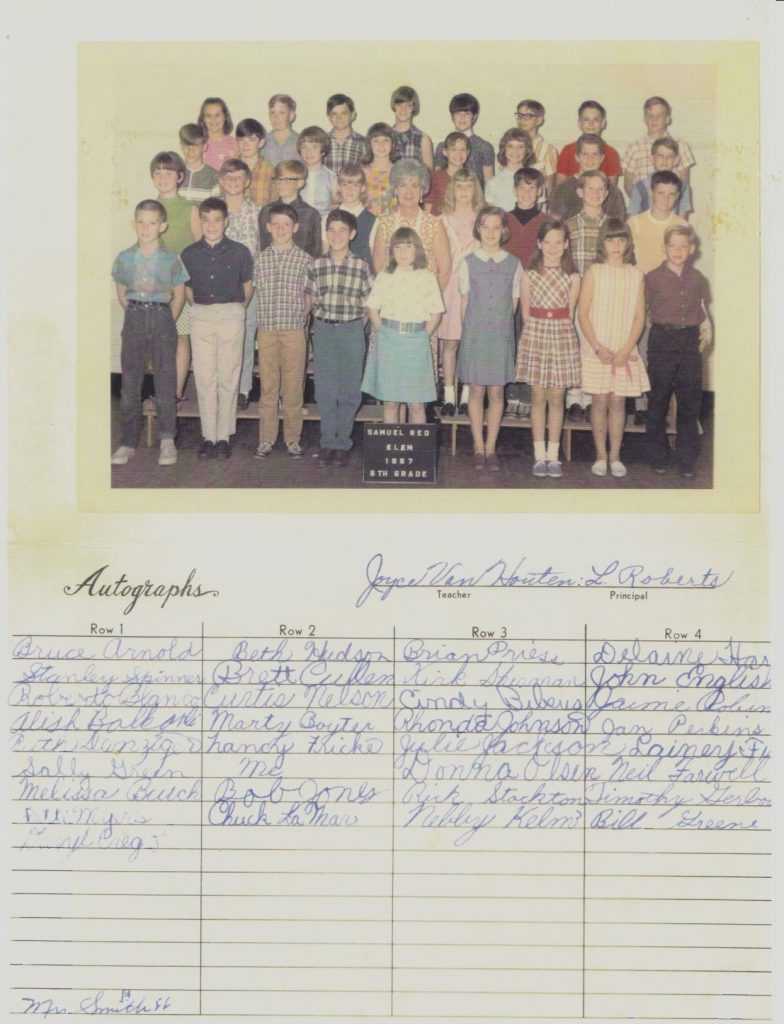 SAMUEL RED
ELEM
1967
5TH GRADE
Autographs
Joyce Van Houten: L. Roberts
Teacher Principal
Row 1 Row 2 Row 3 Row 4
Bruce Arnold Beth Hudson Brian Priess Delaine Har
Stanley Spinner Brett Cullen Kirk John English
Roberto Blanco Curtis Nelson Cindy Jaime Robin
Alish Marty Boyter Rhonda Johnson Jan Perkins
Ruth Danziger Nancy Fricke Julie Jackson Lainey Fu
Sally Green Me Donna Olsen Neil Farwell
Melissa Busch Bob Jones Rick Stockton Timothy
Myers Chuck La Mar Nebby Kelm Bill Greene
Daryl
Mrs Smith 1st